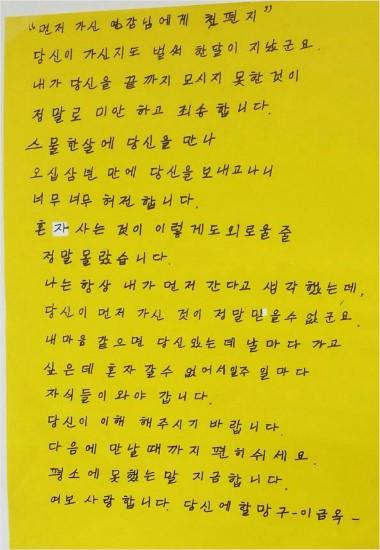 "먼저 가신 영감님에게 첫편지"
당신이 가신지도 벌써 한달이 지났군요.
내가 당신을 끝까지 모시지 못한것이
정말로 미안 하고 죄송합니다.
스물한살에 당신을 만나
오십삼변 만에 당신을 보내고나니
너무 너무 허전합니다.
혼자사는 것이 이렇게도외로울 줄
정말 몰랐습니다.
나는 항상 내가 먼저 간다고 생각했는데,
당신이 먼저 가신 것이 정말 믿을수 없군요.
내마음 같으면 당신있는데 날마다 가고
싶은데 혼자 갈수 없어서일주일마다
자식들이 와야 갑니다.
당신이 이해 해주시기 바랍니다.
다음에 만날때까지 편히쉬세요.
평소에 못했는말 지금합니다.
여보 사랑합니다. 당신에할망구-이금옥-